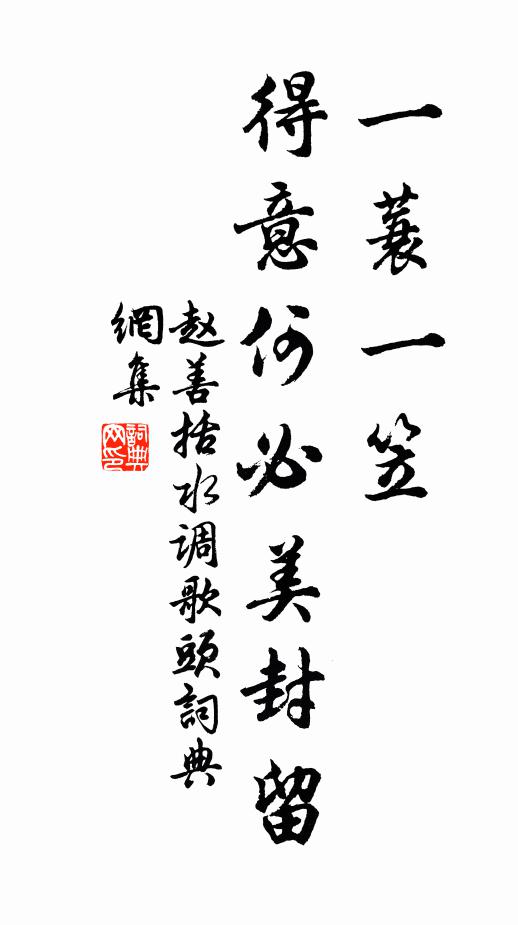 一蓑一笠
得意何必美封留
赵善括水调歌頭詞典
網集
詞典
网印